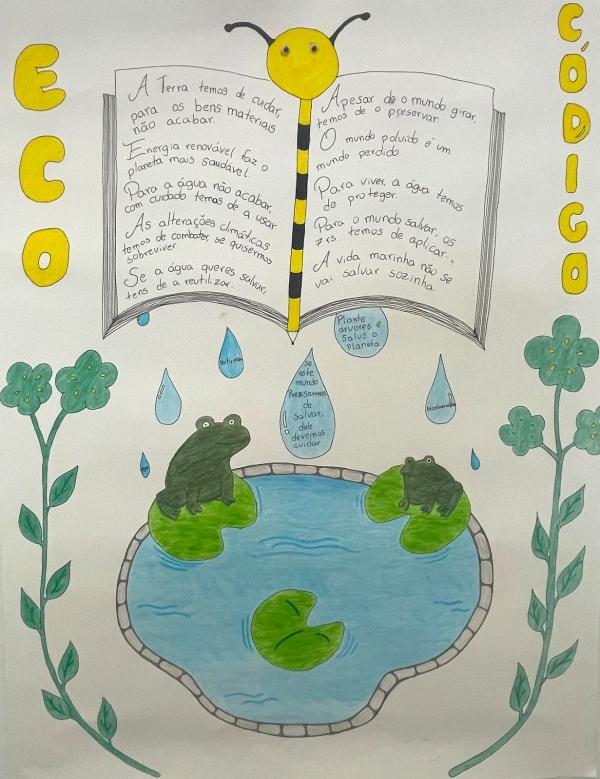 ECO
CÓDIGO
A Terra temos de cuidar,
para os bens materiais
não acabar.
Energia renovável faz o
planeta mais saudável.
Para a água não acabar,
com cuidado temos de a usar.
As alterações climáticas
temos de combater, se quisermos
sobreviver.
Se a água queres salvar,
tens de a reutilizar.
Apesar do o mundo girar,
temos de o preservar.
O mundo poluido é um
mundo perdido.
Para viver, a água temos
de proteger.
Para o mundo salvar, os
7 rs temos de aplicar..
A vida marinha não se
vai salvar sozinha.
Plante
árvores e
Salve o
Planeta
Se
este
mundo
Precisarmos
de
salvar,
dele
devemos
cuidar